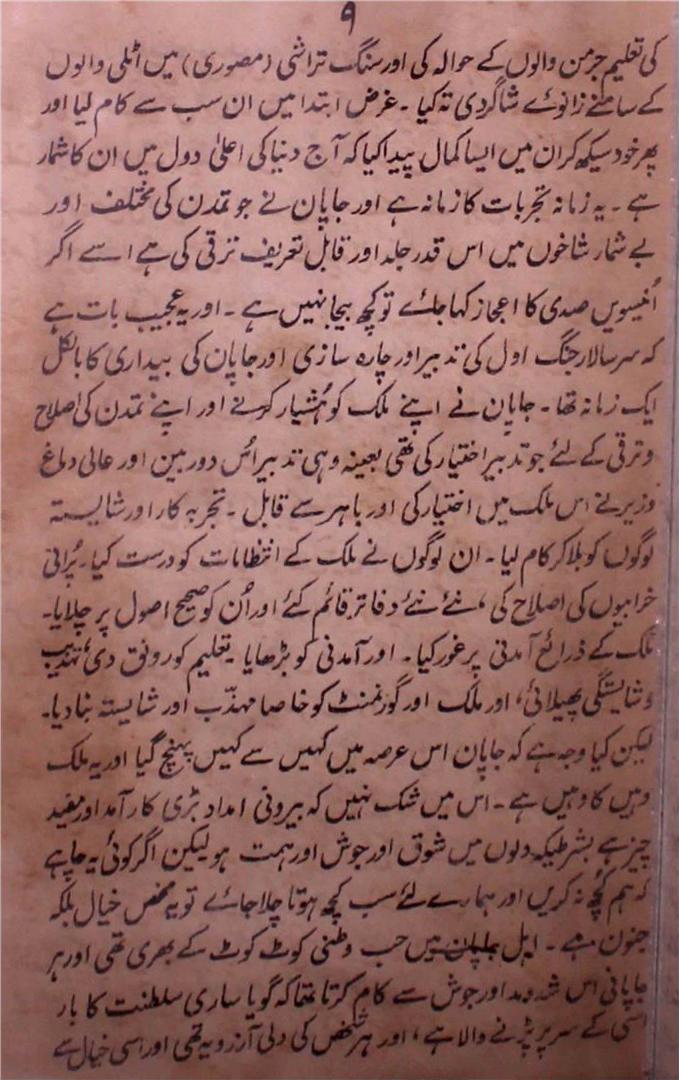 ۹
کی تعلیم جرمن والوں کے حوالہ کی اور سنگ تراشی (مصوری) میں اٹلی والوں
کے سامنے زانوئے شاگردی تہ کیا ۔ غرض ابتدا میں ان سب سے کام لیا اور
پھر خود سیکھ کر ان میں ایسا کمال پیدا کیا کہ آج دنیا کی اعلیٰ دول میں ان کا شمار
ہے ۔ یہ زمانہ تجربات کا زمانہ ہے اور جاپان نے جو تمدن کی مختلف اور
بے شمار شاخوں میں اس قدر جلد اور قابل تعریف ترقی کی ہے اسے اگر
اُنیسویں صدی کا اعجاز کہا جائے تو کچھ بیجا نہیں ہے ۔ اور یہ عجیب بات ہے
کہ سر سالار جنگ اول کی تدبیر اور چارہ سازی اور جاپان کی بیداری کا بالکل
ایک زمانہ تھا ۔ جاپان نے اپنے ملک کو ہُشیار کرنے اور اپنے تمدن کی اصلاح
و ترقی کے لئے جو تدبیر اختیار کی تھی بعینہ وہی تدبیر اُس دوربین اور عالی دماغ
وزیر نے اس ملک میں اختیار کی اور باہر سے قابل ۔ تجربہ کار اور شایستہ
لوگوں کو بلا کر کام لیا ۔ ان لوگوں نے ملک کے انتظامات کو درست کیا ۔ پُرانی
خرابیوں کی اصلاح کی ، نئے نئے دفاتر قائم کئے اور اُن کو صحیح اصول پر چلایا ۔
ملک کے ذرائع آمدنی پر غور کیا ۔ اور آمدنی کو بڑھایا تعلیم کو رونق دی ، تہذیب
و شایستگی پھیلائی ، اور ملک اور گورنمنٹ کو خاصا مہذّب اور شایستہ بنا دیا ۔
لیکن کیا وجہ ہے کہ جاپان اس عرصہ میں کہیں سے کہیں پہنچ گیا اور یہ ملک
وہیں کا وہیں ہے ۔ اس میں شک نہیں کہ بیرونی امداد بڑی کار آمد اور مفید
چیز ہے بشرطیکہ دلوں میں شوق اور جوش اور ہمت ہو لیکن اگر کوئی یہ چاہے
کہ ہم کچھ نہ کریں اور ہمارے لئے سب کچھ ہوتا چلا جائے تو یہ محض خیال بلکہ
جنون ہے ۔ اہل جاپان میں حب وطنی کوٹ کوٹ کے بھری تھی اور ہر
جاپانی اس شد ومد اور جوش سے کام کرتا تھا کہ گویا ساری سلطنت کا بار
اسی کے سر پر پڑنے والا ہے ، اور ہر شخص کی دلی آرزو یہ تھی اور اسی خیال سے